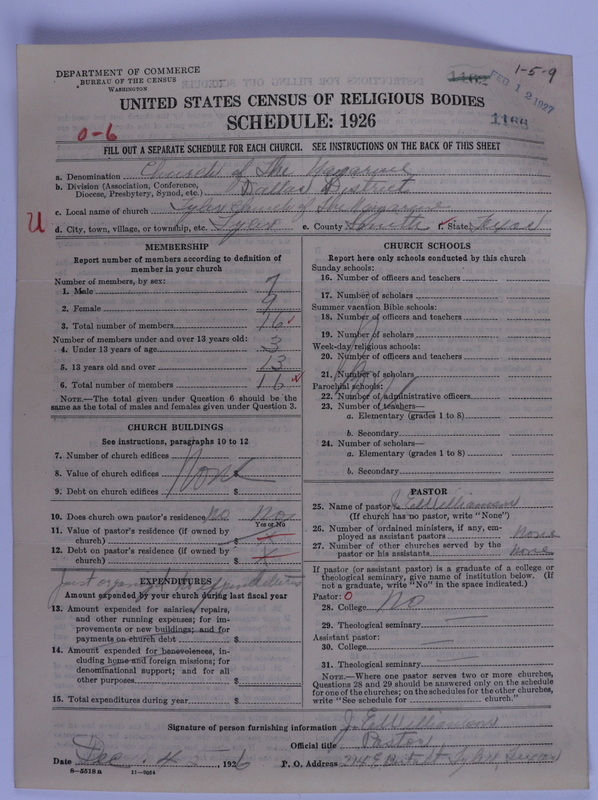 DEPARTMENT OF COMMERCE
BUREAU OF THE CENSUS
WASHINGTON
1-5-9
FEB 12 1927
UNITED STATES CENSUS OF RELIGIOUS BODIES
SCHEDULE: 1926
0-6
FILL OUT A SEPARATE SCHEDULE FOR EACH CHURCH. SEE INSTRUCTIONS ON THE BACK OF THIS SHEET
a. Denomination Church of The Nazarine
b. Division (Association, Conference, Diocese, Presbytery, Synod, etc.) Dallas District
c. Local name of church Tyler Church of The Nazarine
U
d. City, town, village, or township, etc. Tyler e. County Smith f. State Texas
MEMBERSHIP
Report number of members according to definition of
member in your church
Number of members, by sex:
1. Male 7
2. Female 9
3. Total number of members 16
Number of members under and over 13 years old:
4. Under 13 years of age 3
5. 13 years old and over 13
6. Total number of members 16
NOTE.—The total given under Question 6 should be the
same as the total of males and females given under Question 3.
CHURCH BUILDINGS
See instructions, paragraphs 10 to 12
7. Number of church edifices
8. Value of church edifices $ None
9. Debt on church edifices $
10. Does church own pastor's residence no No
Yes or No
11. Value of pastor's residence (if owned by
church) $
12. Debt on pastor's residence (if owned by
church) $
Just organized
EXPENDITURES
Amount expended by your church during last fiscal year
13. Amount expended for salaries, repairs,
and other running expenses; for im-
provements or new buildings; and for
payments on church debt $
14. Amount expended for benevolences, in-
cluding home and foreign missions; for
denominational support; and for all
other purposes $
15. Total expenditures during year $
CHURCH SCHOOLS
Report here only schools conducted by this church
Sunday schools:
16. Number of officers and teachers
17. Number of scholars
Summer vacation Bible schools:
18. Number of officers and teachers
19. Number of scholars
Week-day religious schools:
20. Number of officers and teachers
21. Number of scholars
Parochial schools:
22. Number of administrative officers
23. Number of teachers—
a. Elementary (grades 1 to 8)
b. Secondary
24. Number of scholars—
a. Elementary (grades 1 to 8)
b. Secondary
PASTOR
25. Name of pastor J. E. Williamson
(If church has no pastor, write "None")
26. Number of ordained ministers, if any, em-
ployed as assistant pastors None
27. Number of other churches served by the
pastor or his assistants None
If pastor (or assistant pastor) is a graduate of a college or
theological seminary, give name of institution below. (If
not a graduate, write "No" in the space indicated.)
Pastor: 0
28. College No
29. Theological seminary
Assistant pastor:
30. College
31. Theological seminary
NOTE.—Where one pastor serves two or more churches,
Questions 28 and 29 should be answered only on the schedule
for one of the churches; on the schedules for the other churches,
write "See schedule for church."
Signature of person furnishing information J. E. Williamson
Official title Pastor
Date Dec. 4, 1926 P. O. Address Tyler, Texas
8—5518 a 11—9064